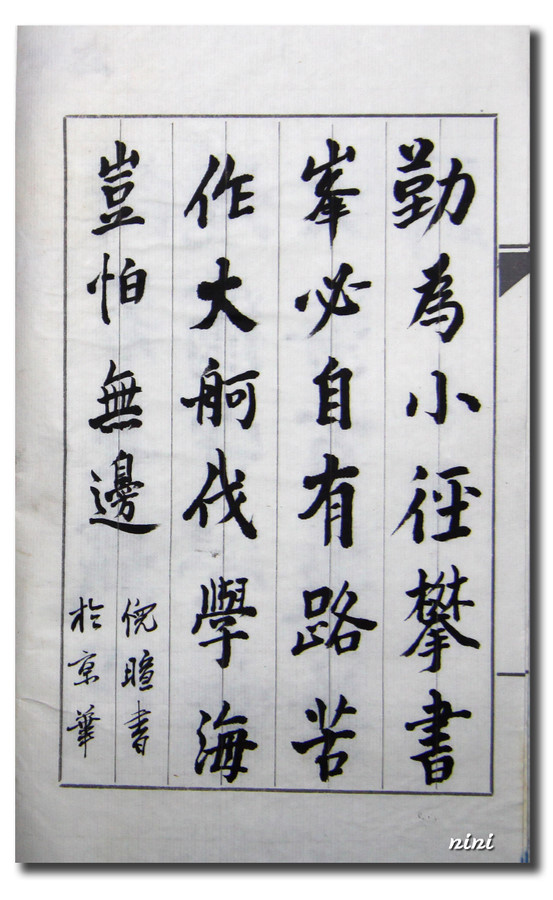 勤為小徑攀書
峯必自有路苦
作大舸伐學海
豈怕無邊
倪暄書
於京華
nini